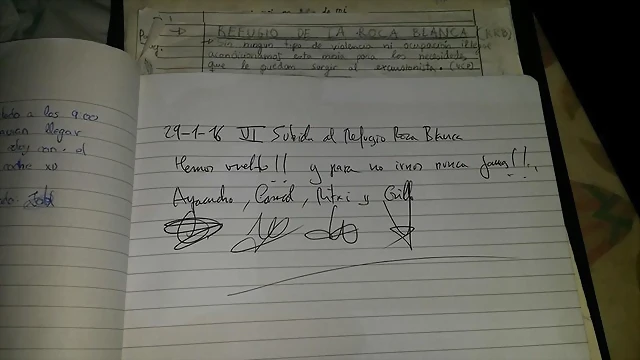 REFUGIO DE LA ROCA BLANCA (RRB)
Sin ningun tipo de violencia ni ocupación
acondicionamos esta mania para las necesidades
que le puedan surgir al excursionista. (UCP)
do a las 9:00
llegar
con el
coche xD
29-1-16 VI Subida al Refugio Roca Blanca
Hemos vuelto!! y para no irnos nunca jamas!!...
Ayacucho, Corral, Pitxi y Grillo